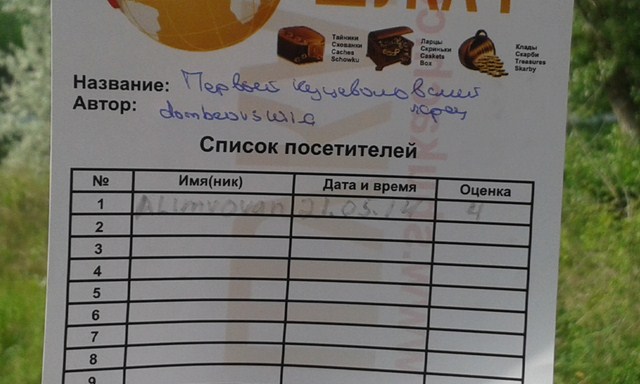 ШУКАЧ
Тайники
Схованки
Caches
Schowku
Ларцы
Скриньки
Caskets
Box
Клады
Скарби
Treasures
Skarby
Название: Первый куцеволовский
Автор: dombrovskiie ларец
Список посетителей
№ Имя(ник) Дата и время Оценка
1 21.05.14 4
2
3
4
5
6
7
8
9